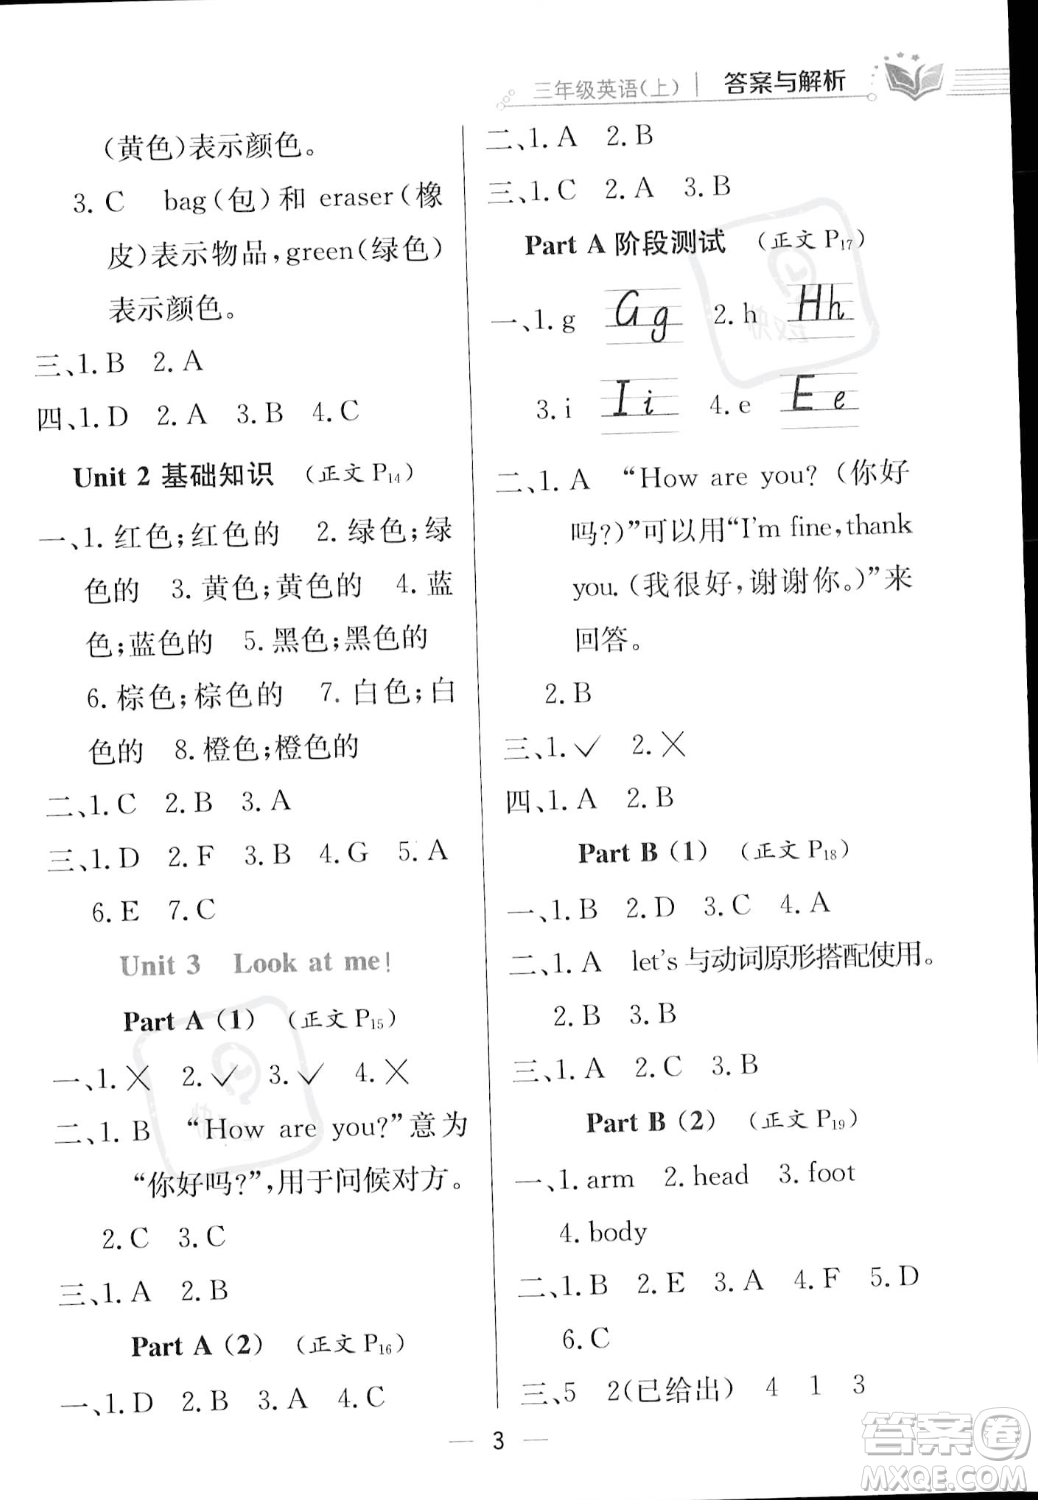 三年级英语(上) | 答案与解析
(黄色)表示颜色。
3. C bag(包)和 eraser(橡
皮)表示物品,green(绿色)
表示颜色。
三、1. B 2. A
四、1. D 2. A 3. B 4. C
Unit 2 基础知识 (正文 P14)
一、1. 红色;红色的 2. 绿色;绿
色的 3. 黄色;黄色的 4. 蓝
色;蓝色的 5. 黑色;黑色的
6. 棕色;棕色的 7. 白色;白
色的 8. 橙色;橙色的
二、1. C 2. B 3. A
三、1. D 2. F 3. B 4. G 5. A
6. E 7. C
Unit 3 Look at me!
Part A (1) (正文 P15)
一、1. ✗ 2. ✓ 3. ✓ 4. ✗
二、1. B “How are you?”意为
“你好吗?”,用于问候对方。
2. C 3. C
三、1. A 2. B
Part A (2) (正文 P16)
一、1. D 2. B 3. A 4. C
二、1. A 2. B
三、1. C 2. A 3. B
Part A 阶段测试 (正文 P17)
一、1. g Gg 2. h Hh
3. i Ii 4. e Ee
二、1. A “How are you? (你好
吗?)”可以用“I'm fine, thank
you. (我很好,谢谢你。)”来
回答。
2. B
三、1. ✓ 2. ✗
四、1. A 2. B
Part B (1) (正文 P18)
一、1. B 2. D 3. C 4. A
二、1. A let's 与动词原形搭配使用。
2. B 3. B
三、1. A 2. C 3. B
Part B (2) (正文 P19)
一、1. arm 2. head 3. foot
4. body
二、1. B 2. E 3. A 4. F 5. D
6. C
三、5 2(已给出) 4 1 3
3
答案圈
MXQE.COM